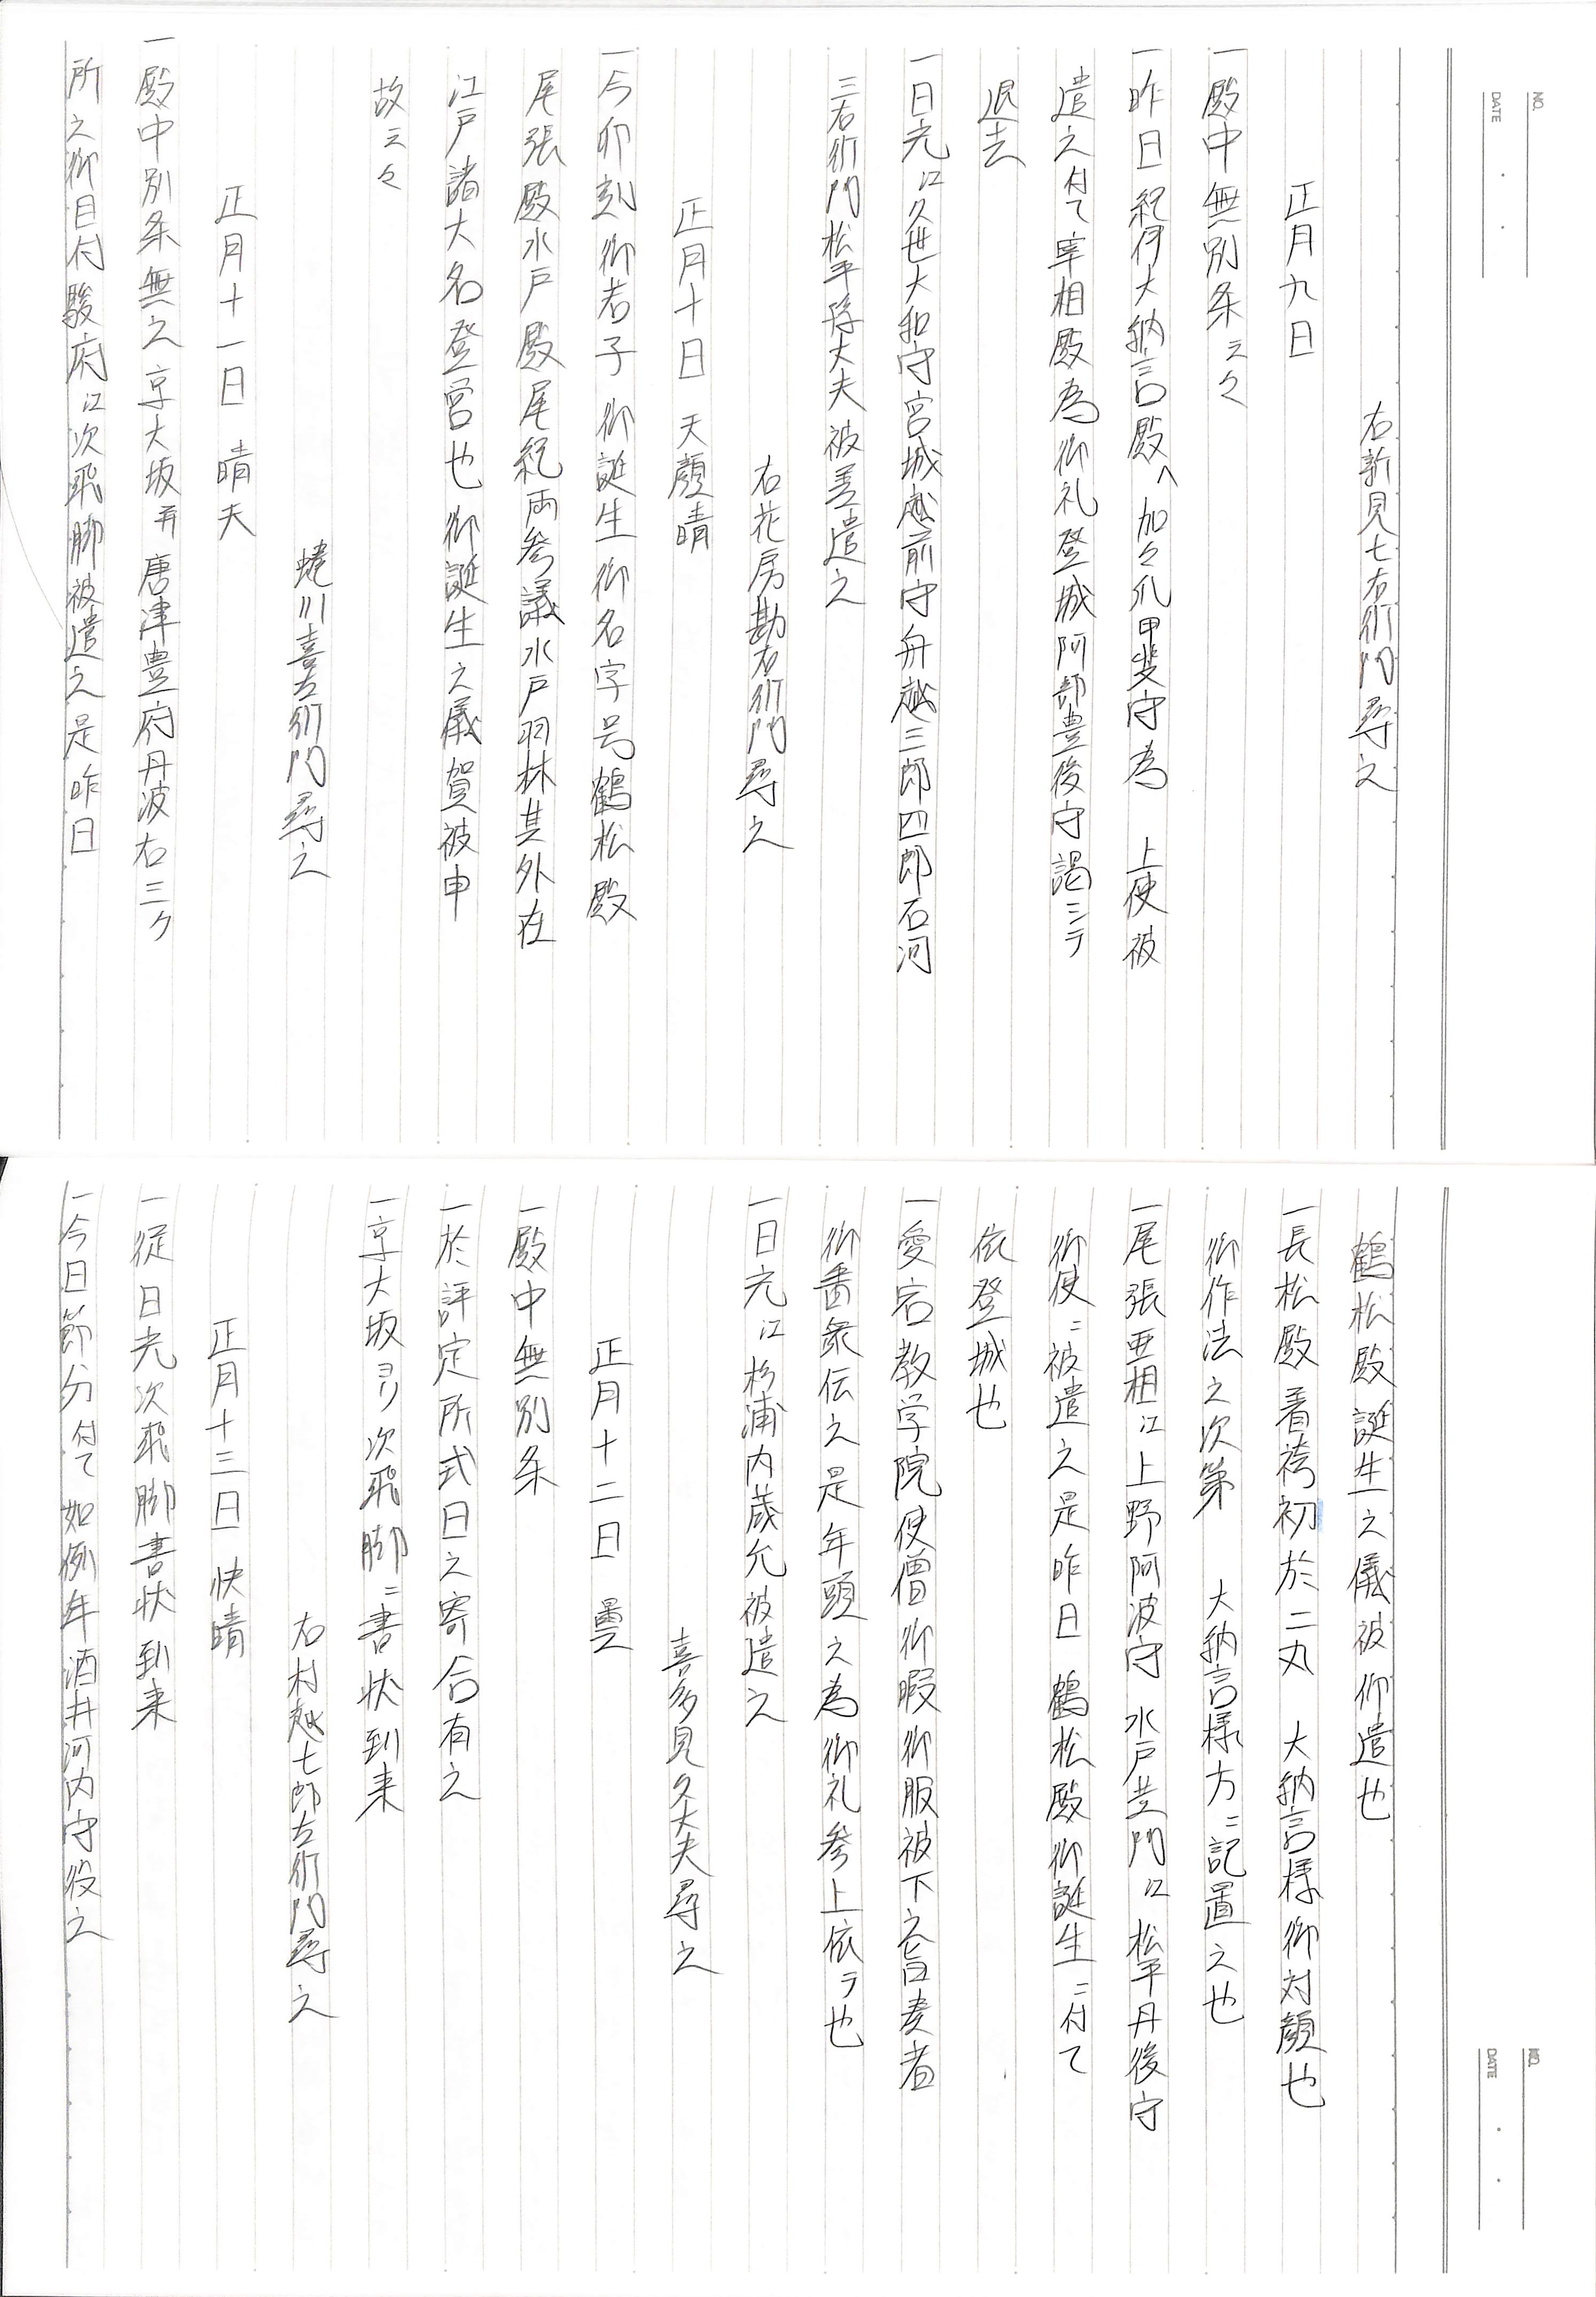 NO.
DATE
右新見七右衛門尋之
正月九日
一殿中無別条云々
一昨日紀伊大納言殿へ加々爪甲斐守為 上使被
遣之付て宰相殿為御礼登城阿部豊後守謁シテ
退去
一日光江久世大和守宮城越前守舟越三郎四郎石河
三右衛門松平隼大夫被差遣之
右花房勘右衛門尋之
正月十日 天顔晴
一今卯刻御若子御誕生御名字号鶴松殿
尾張殿水戸殿尾紀両参議水戸羽林其外在
江戸諸大名登営也御誕生之儀賀被申
故云々
蜷川喜左衛門尋之
正月十一日 晴天
一殿中別条無之京大坂并唐津豊府丹波右三ケ
所之御目付駿府江次飛脚被遣之是昨日
NO.
DATE
鶴松殿誕生之儀被仰遣也
一長松殿着袴初於二丸 大納言様御対顔也
御作法之次第 大納言様方ニ記置之也
一尾張亜相江上野阿波守 水戸黄門江松平丹後守
御使ニ被遣之是昨日鶴松殿御誕生ニ付て
依登城也
一愛宕教学院使僧御暇御服被下之旨奏者
御番衆伝之是年頭之為御礼参上依テ也
一日光江杉浦内蔵允被遣之
喜多見久大夫尋之
正月十二日 曇
一殿中無別条
一於評定所式日之寄合有之
一京大坂ヨリ次飛脚ニ書状到来
右村越七郎左衛門尋之
正月十三日 快晴
一従日光次飛脚書状到来
一今日節分付て如例年酒井河内守役之